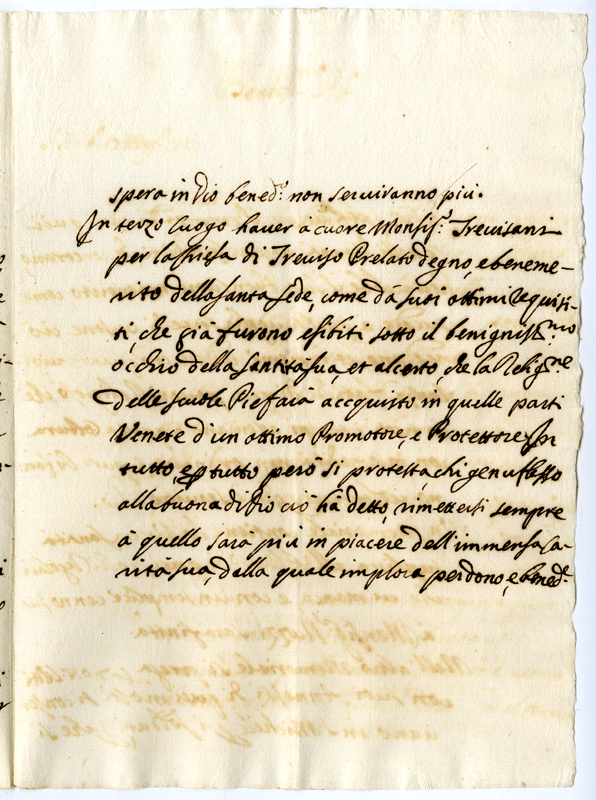 spera in Dio bened.º non seruiranno più.
In terzo luogo hauer à cuore Monsig.r Treuisani
per la chiesa di Treuiso Prelato degno, e beneme-
rito della Santa Sede, come dà suoi ottimi requisi-
ti, che già furono esibiti sotto il benigniss.mo
occhio della Santità Sua, et al certo, che la Relig.ne
delle Scuole Pie farà accquisto in quelle parti
Venete d'un ottimo Promotore, e Protettore. In
tutto, e p tutto però si protesta, chi genuflesso
alla buona di Dio ciò hà detto, rimetterti sempre
à quello sarà più in piacere dell'immensa ca-
rità sua, dalla quale implora perdono, e bened.e